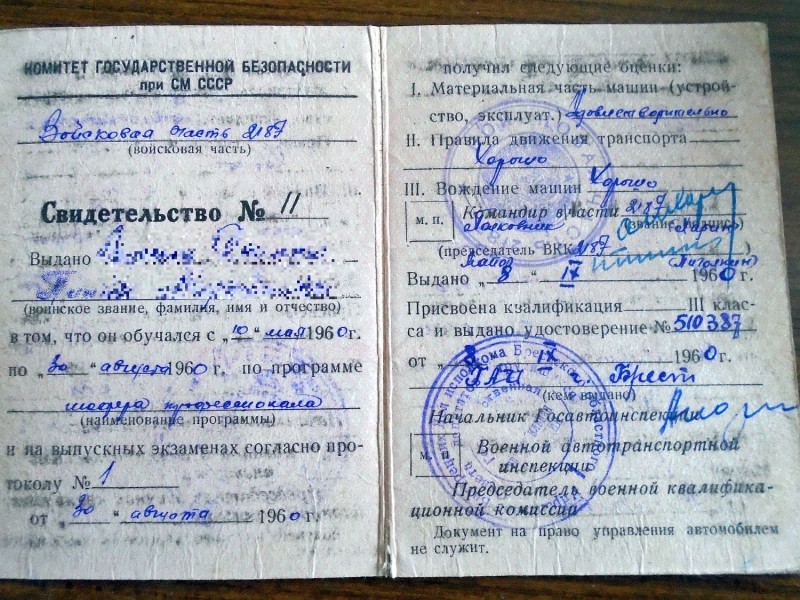 КОМИТЕТ ГОСУДАРСТВЕННОЙ БЕЗОПАСНОСТИ
при СМ СССР
Войсковая часть 2187
(войсковая часть)
Свидетельство № 11
Выдано
(воинское звание, фамилия, имя и отчество)
в том, что он обучался с „10“ мая 1960 г.
по „30“ августа 1960 г. по программе
шофера профессионала
(наименование программы)
и на выпускных экзаменах согласно про-
токолу № 1
от „30“ августа 1960 г.
получил следующие оценки:
I. Материальная часть машин (устрой-
ство, эксплуат.) Удовлетворительно
II. Правила движения транспорта
Хорошо
III. Вождение машин Хорошо
м. п. Командир в/части 2187
Полковник (звание, подпись)
(председатель ВКК) 2187
Майор
Выдано „8“ IX 1960 г.
Присвоена квалификация III клас-
са и выдано удостоверение № 510387
от „8“ IX 1960 г.
ГАИ г. Брест
(кем выдано)
Начальник Госавтоинспекции
м. п. Военной автотранспортной
инспекции
Председатель военной квалифика-
ционной комиссии
Документ на право управления автомобилем
не служит.